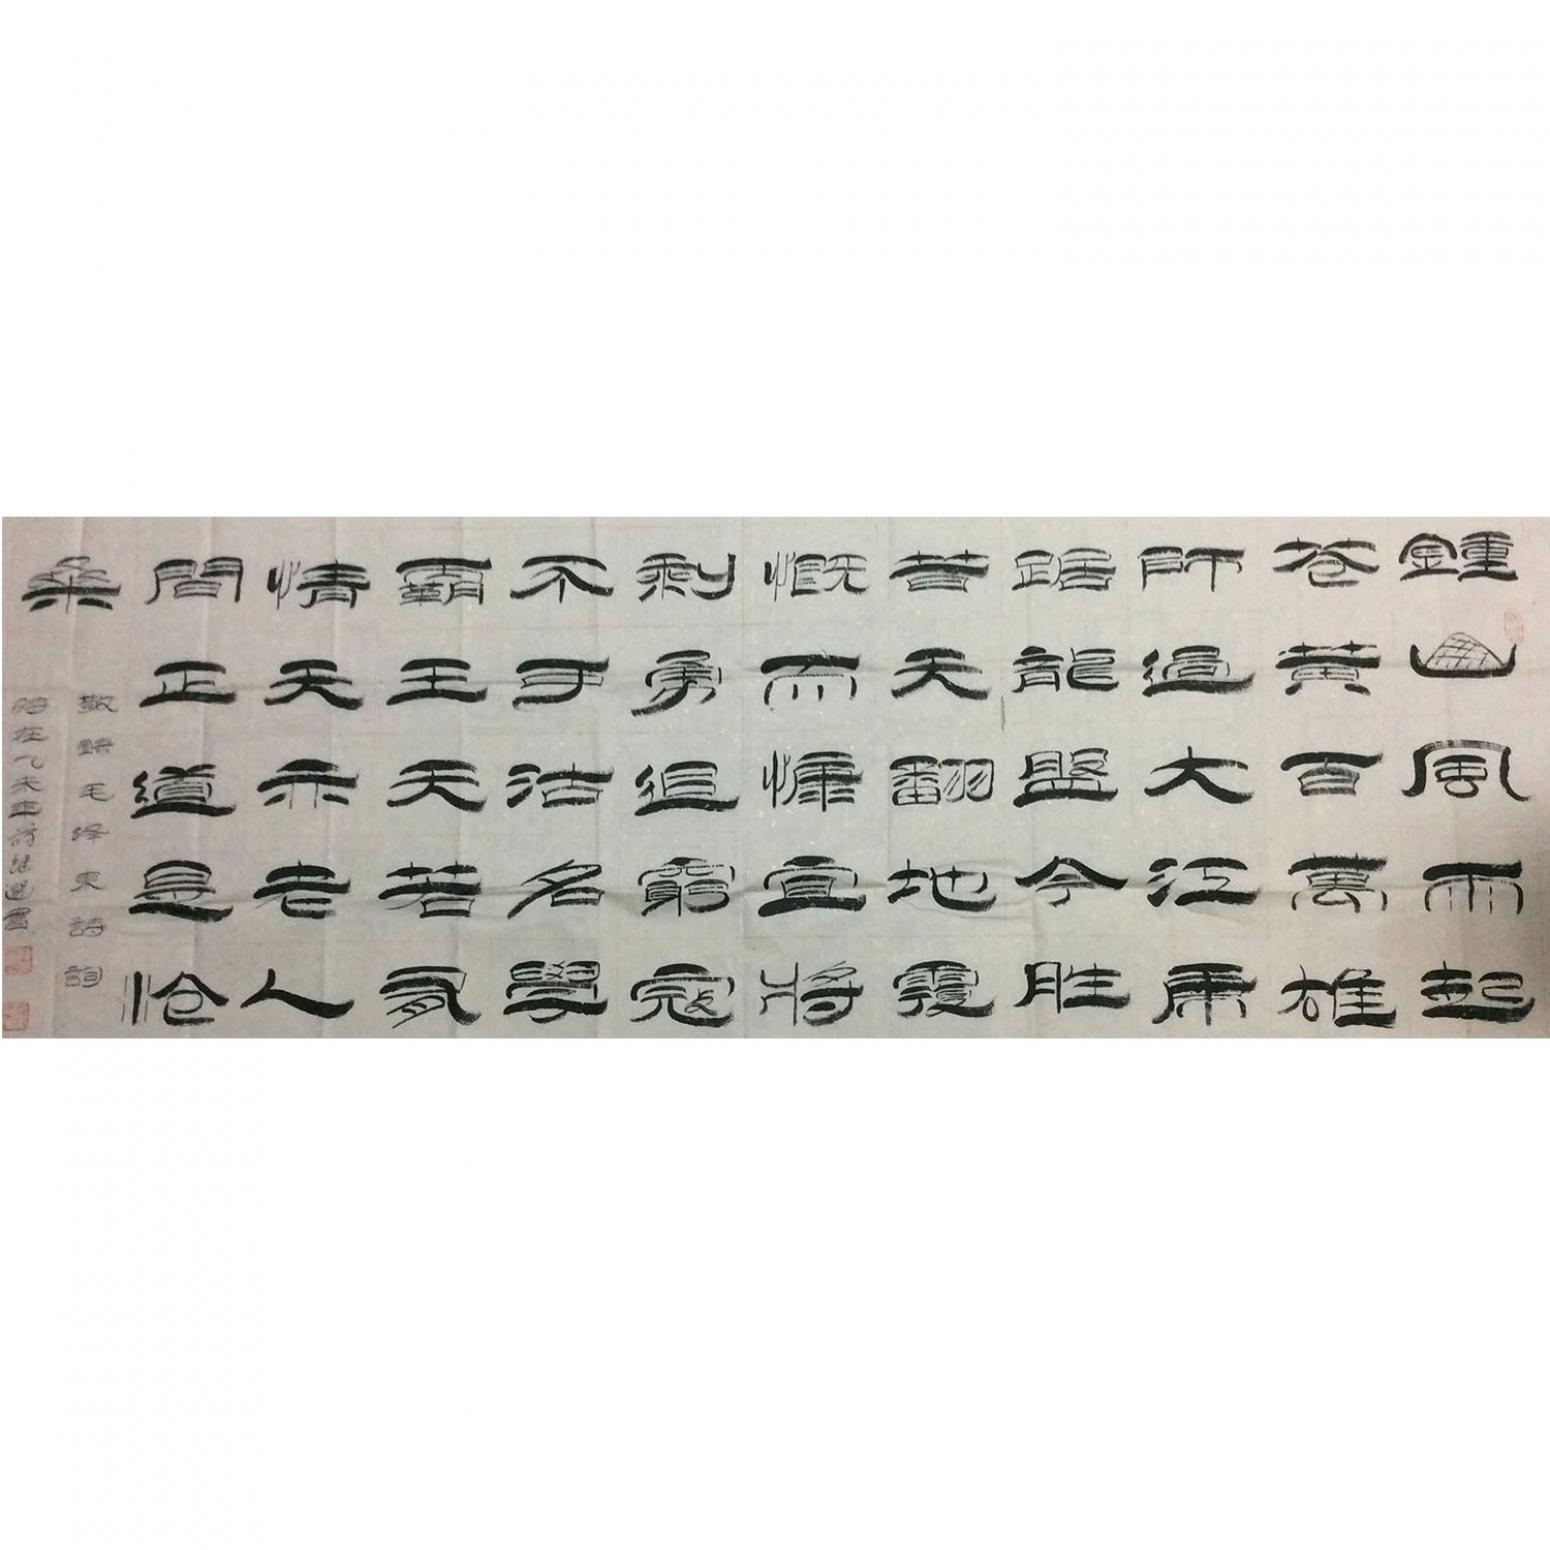 鍾山風雨起
苍黄百萬雄
師過大江虎
踞龍盤今胜
昔天翻地覆
慨而慷宜將
剩勇追窮寇
不可沽名學
霸王天若有
情天亦老人
間正道是滄
桑
敬錄毛泽東詩詞
時在乙未年